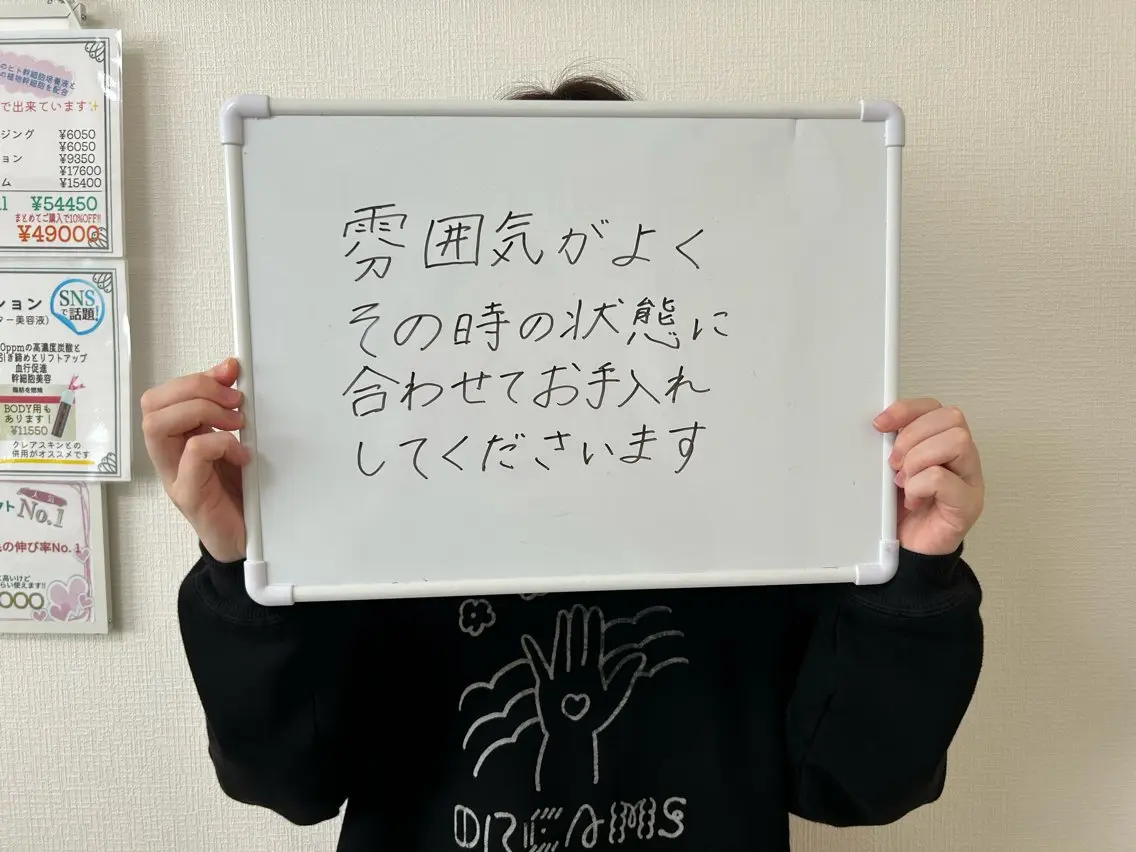 のヒト幹細胞培養液と
の植物幹細胞を配合
で出来ています
ジング ¥6050
¥6050
ョン ¥9350
¥17600
ム ¥15400
¥54450
まとめてご購入で10%OFF!!
¥49000
ション
ター美容液)
SNS
で話題!
0ppmの高濃度炭酸と
引き締めとリフトアップ
血行促進
幹細胞美容
脂肪を燃焼
BODY用も
あります!
¥11550
クレアスキンとの
併用がオススメです
人気
No.1
の伸び率No.1
高いけど
らい使えます!!
000
雰囲気がよく
その時の状態に
合わせてお手入れ
してくださいます
DREAMS